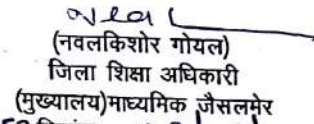 (नवलकिशोर गोयल)
जिला शिक्षा अधिकारी
(मुख्यालय)माध्यमिक जैसलमेर